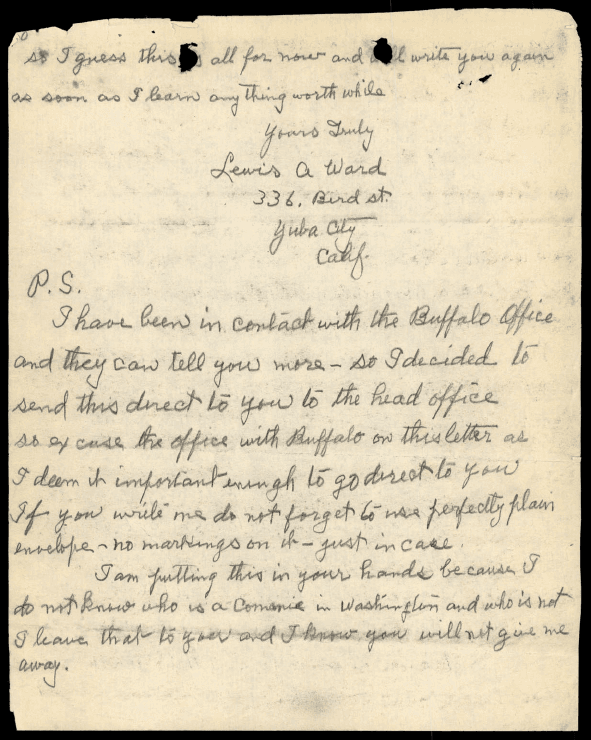 so I guess this all for now and will write you again
as soon as I learn anything worth while
Yours Truly
Lewis A Ward
336. Bird st.
Yuba City
Calif.
P.S.
I have been in contact with the Buffalo Office
and they can tell you more - so I decided to
send this direct to you to the head office
so excuse the office with Buffalo on this letter as
I deem it important enough to go direct to you
If you write me do not forget to use perfectly plain
envelope - no markings on it - just in case.
I am putting this in your hands because I
do not know who is a Commie in Washington and who is not
I leave that to you and I know you will not give me
away.